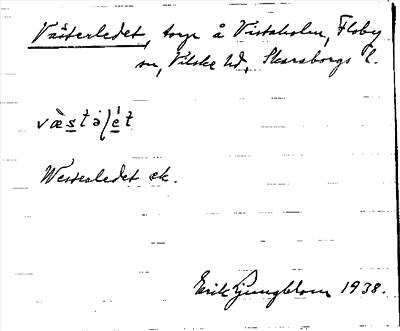 Västerledet, torp å Vistaholm, Floby
sn, Vilske hd, Skaraborgs l.
Westerledet ek.
Erik Ljungblom 1938.